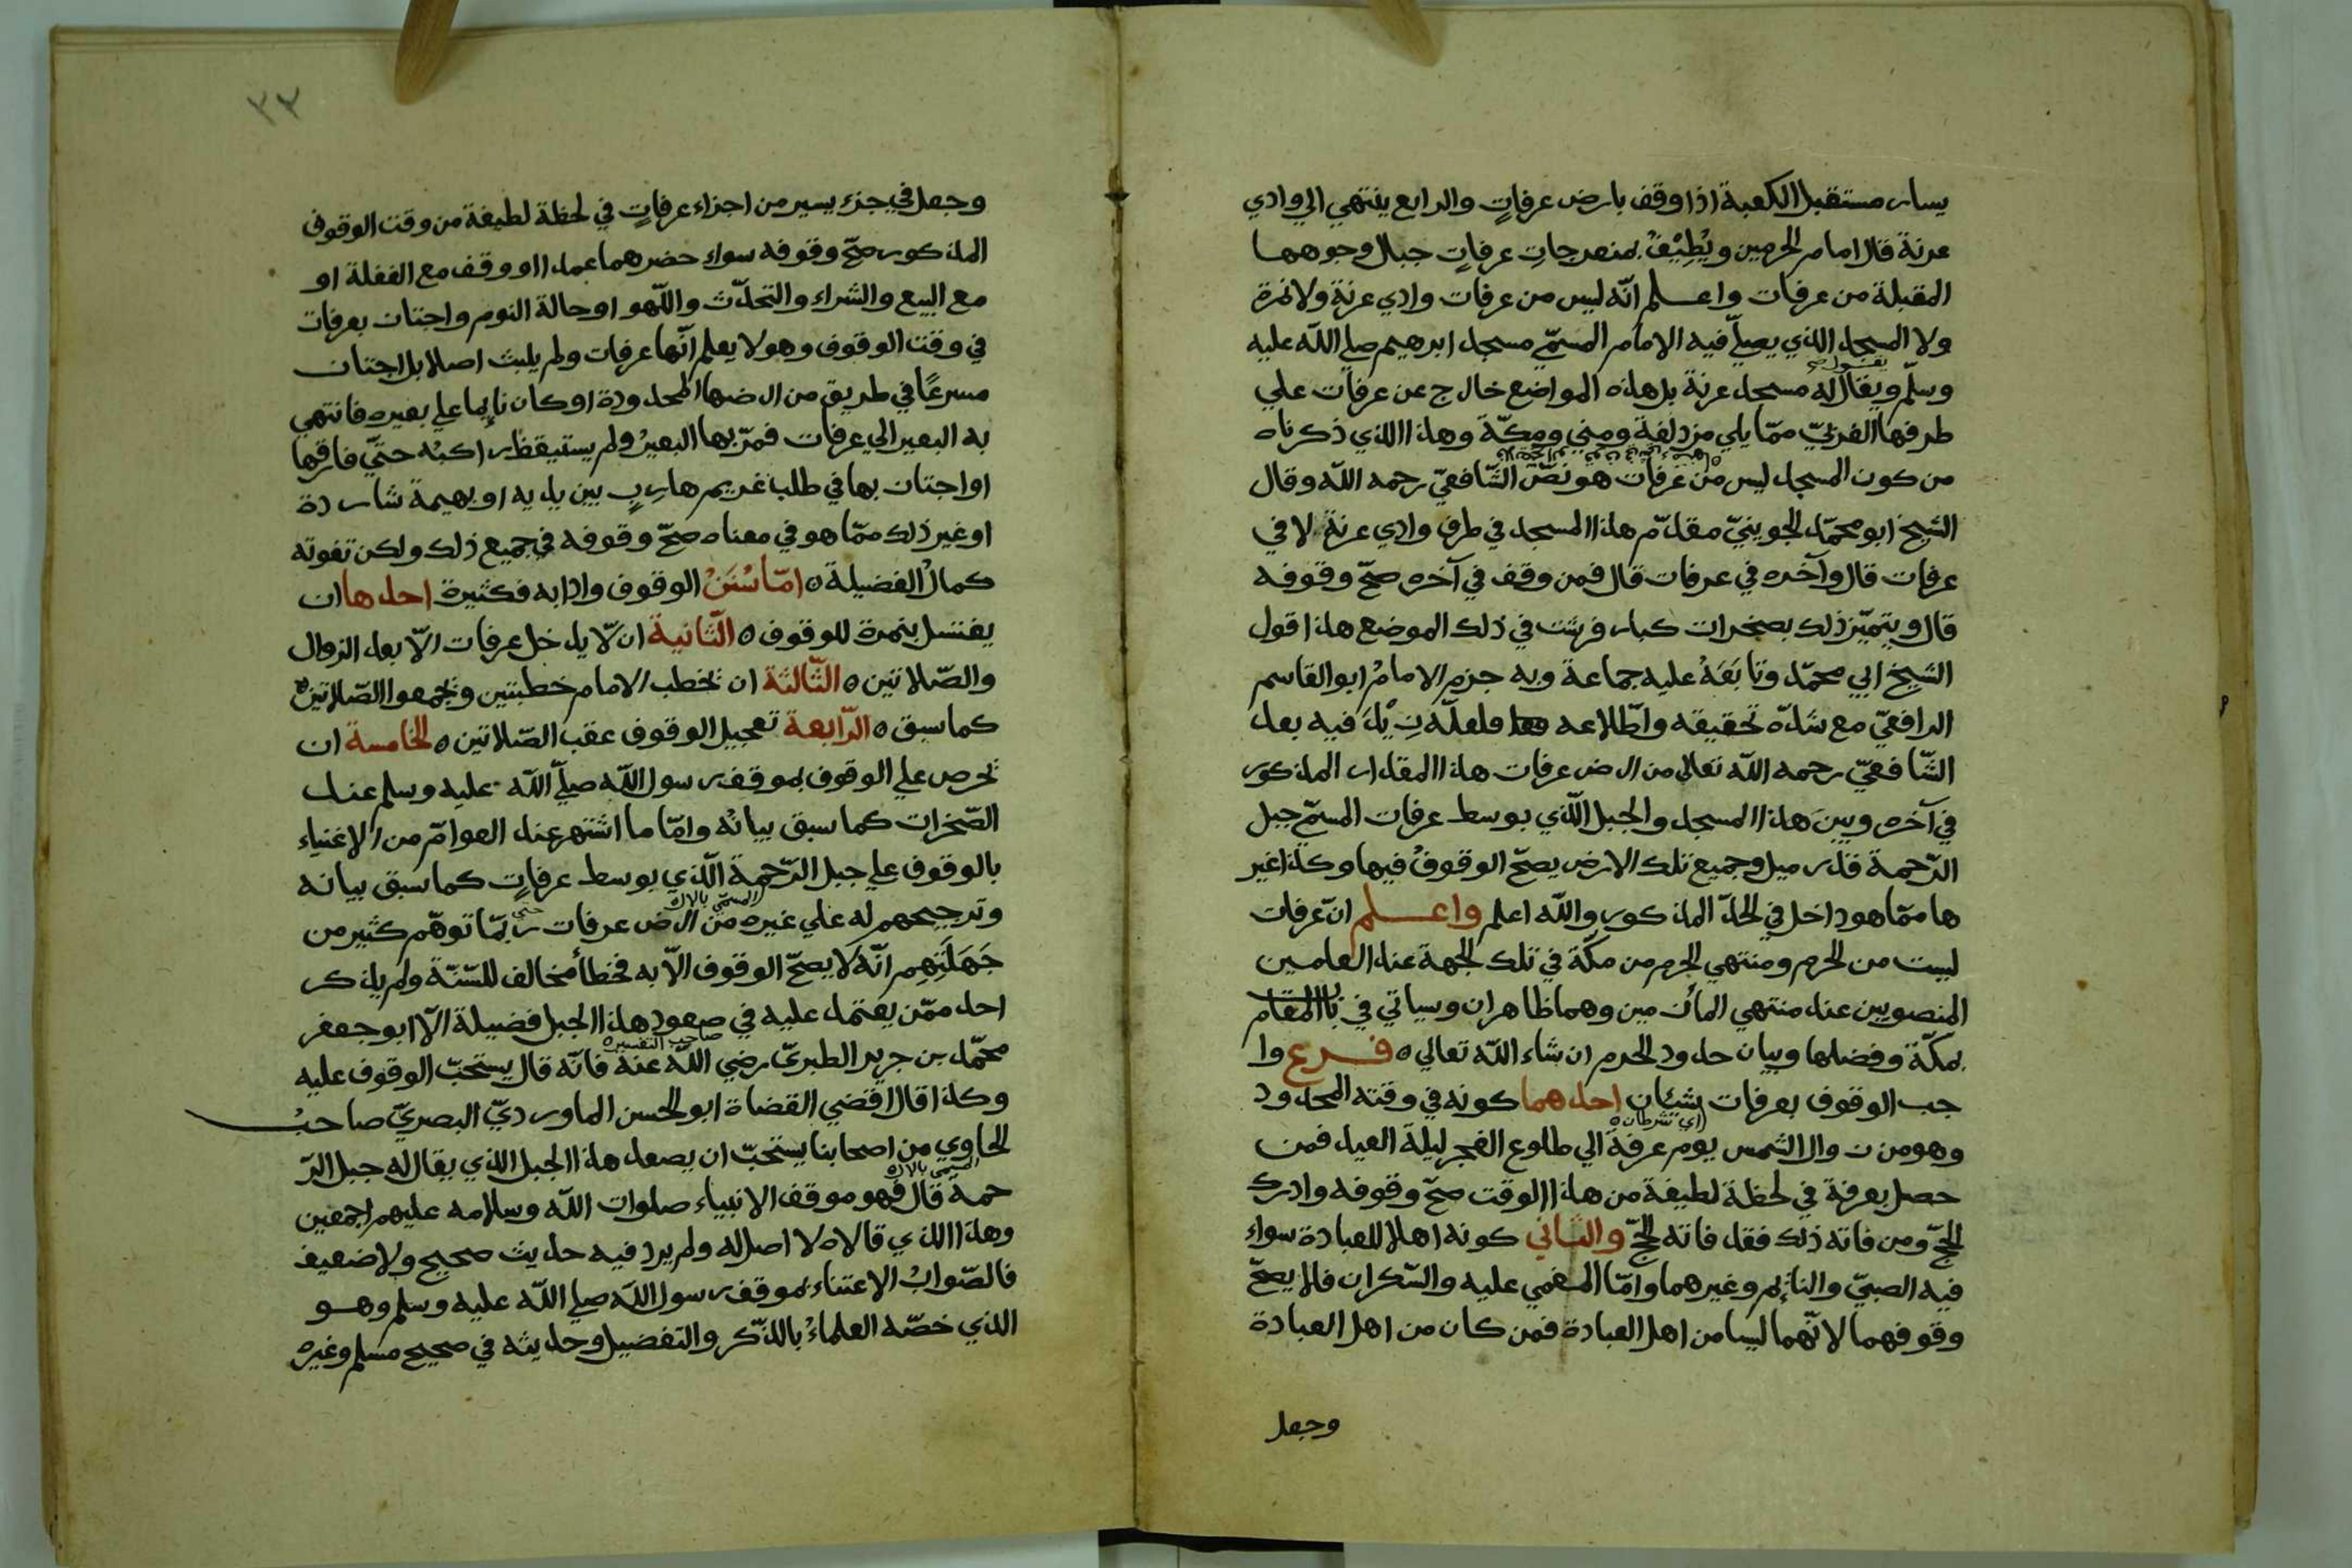 يسار مستقبل الكعبة اذا وقف بارض عرفاتٍ والرابع ينتهي الي وادي
عرنة قال امام الحرمين ويُطِيْفُ بمنعرجاتِ عرفاتٍ جبال وجوهها
المقبلة من عرفات واعلم انّه ليس من عرفات وادي عرنة ولا نمرة
ولا المسجد الذي يصلّي فيه الامام المسمّي مسجد ابرهيم صلي اللّه عليه
وسلّم ويقال له مسجد عرنة بل هذه المواضع خارج عن عرفات علي
طرفها الغربيّ ممّا يلي مزدلفة ومني ومكّة وهذا الذي ذكرناه
من كون المسجد ليس من عرفات هو نصّ الشّافعيّ رحمه اللّه وقال
الشيخ ابو محمّد الجوينيّ مقدّم هذا المسجد في طرف وادي عرنة لا في
عرفات قال وآخره في عرفات قال فمن وقف في آخره صحّ وقوفه
قال ويتميّز ذلك بصخرات كبار فرشت في ذلك الموضع هذا قول
الشيخ ابي محمّد وتابَعَهُ عليه جماعة وبه جزم الامامُ ابو القاسم
الرافعيّ مع شدّه تحقيقه واطّلاعه فلعلّه زِيْدَ فيه بعد
الشّافعيّ رحمه اللّه تعالي من ارض عرفات هذا المقدار المذكور
في آخره وبينَ هذا المسجد والجبل الّذي بوسط عرفات المسمّي جبل
الرّحمة قدر ميل وجميع تلك الارض يصحّ الوقوفُ فيها وكذا غير
ها ممّا هو داخل في الحدّ المذكور واللّه اعلم واعلم انّ عرفات
ليست من الحرم ومنتهي الحرم من مكّة في تلك الجهة عند العلمين
المنصوبين عند منتهي المأزمين وهما ظاهران وسياتي في باب المقام
بمكّة وفضلها وبيان حدود الحرم ان شاء اللّه تعالي ٥ فرع وا
جب الوقوف بعرفات شيئان احدهما كونه في وقته المحدود
اي شرطان
وهو من زوال الشمس يوم عرفة الي طلوع الفجر ليلة العيد فمن
حصل بعرفة في لحظة لطيفة من هذا الوقت صحّ وقوفه وادرك
الحجّ ومن فاته ذلك فقد فاته الحجّ والثاني كونه اهلا للعبادة سواء
فيه الصبيّ والنائم وغيرهما وامّا المغمي عليه والسّكران فلا يصحّ
وقوفهما لانّهما ليسا من اهل العبادة فمن كان من اهل العبادة
وجعل
٣٣
وجعل في جزء يسير من اجزاء عرفاتٍ في لحظة لطيفة من وقت الوقوف
المذكور صحّ وقوفه سواء حضرهما عمدا او وقف مع الغفلة او
مع البيع والشراء والتحدّث واللّهو او حالة النوم واجتاز بعرفات
في وقت الوقوف وهو لا يعلم انّها عرفات ولم يلبث اصلا بل اجتاز
مسرعًا في طريق من ارضها المحدودة او كان نائما علي بعيره فانتهي
به البعير الي عرفات فمرّ بها البعيرُ ولم يستيقظ راكبُه حتّي فارقها
او اجتاز بها في طلب غريم هاربٍ بين يديه او بهيمة شاردة
او غير ذلك ممّا هو في معناه صحّ وقوفه في جميع ذلك ولكن تفوته
كمالُ الفضيلة ٥ امّا سُنَنُ الوقوف وادابه فكثيرة احدها ان
يغتسل بنمرة للوقوف ٥ الثّانية ان لّا يدخل عرفات الّا بعد الزوال
والصّلاتين ٥ الثّالثة ان يخطب الامام خطبتين ويجمعوا الصّلاتين
كما سبق ٥ الرّابعة تعجيل الوقوف عقب الصّلاتين ٥ الخامسة ان
يحرص علي الوقوف بموقف رسول اللّه صلّي اللّه عليه وسلم عند
الصّخرات كما سبق بيانُه وامّا ما اشتهر عند العوامّ من الاغنياء
بالوقوف علي جبل الرّحمة الّذي بوسط عرفاتٍ كما سبق بيانه
المسمّي بالال
وترجيحهم له علي غيره من ارض عرفات حتي ربّما توهّم كثير من
جَهَلَتِهِم انّه لا يصحّ الوقوف الّا به فخطأ مخالف للسّنّة ولم يذكر
احد ممّن يعتمد عليه في صعود هذا الجبل فضيلة الّا ابو جعفر
صاحب التفسير
محمّد بن جرير الطبريّ رضي اللّه عنه فانّه قال يستحبّ الوقوف عليه
وكذا قال اقضي القضاة ابو الحسن الماورديّ البصريّ صاحبُ
الحاوي من اصحابنا يستحبّ ان يصعد هذا الجبل الذي يقال له جبل الرّ
المسمي بالال
حمة قال فهو موقف الانبياء صلوات اللّه وسلامه عليهم اجمعين
وهذا الذي قالاه لا اصل له ولم يرد فيه حديث صحيح ولا ضعيف
فالصّوابُ الاعتناء بموقف رسول اللّه صلي اللّه عليه وسلم وهو
الذي خصّه العلماءُ بالذّكر والتفضيل وحديثه في صحيح مسلم وغيره